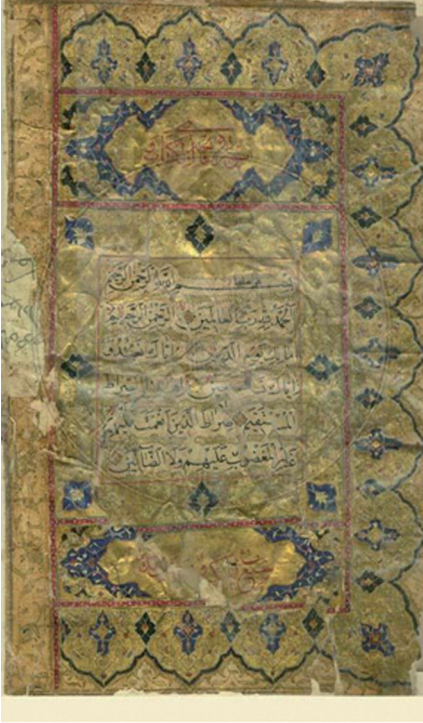 سورة فاتحة الكتاب
بسم الله الرحمن الرحيم
الحمد لله رب العالمين الرحمن الرحيم
مالك يوم الدين اياك نعبد و
اياك نستعين اهدنا الصراط
المستقيم صراط الذين انعمت عليهم
غير المغضوب عليهم ولا الضالين